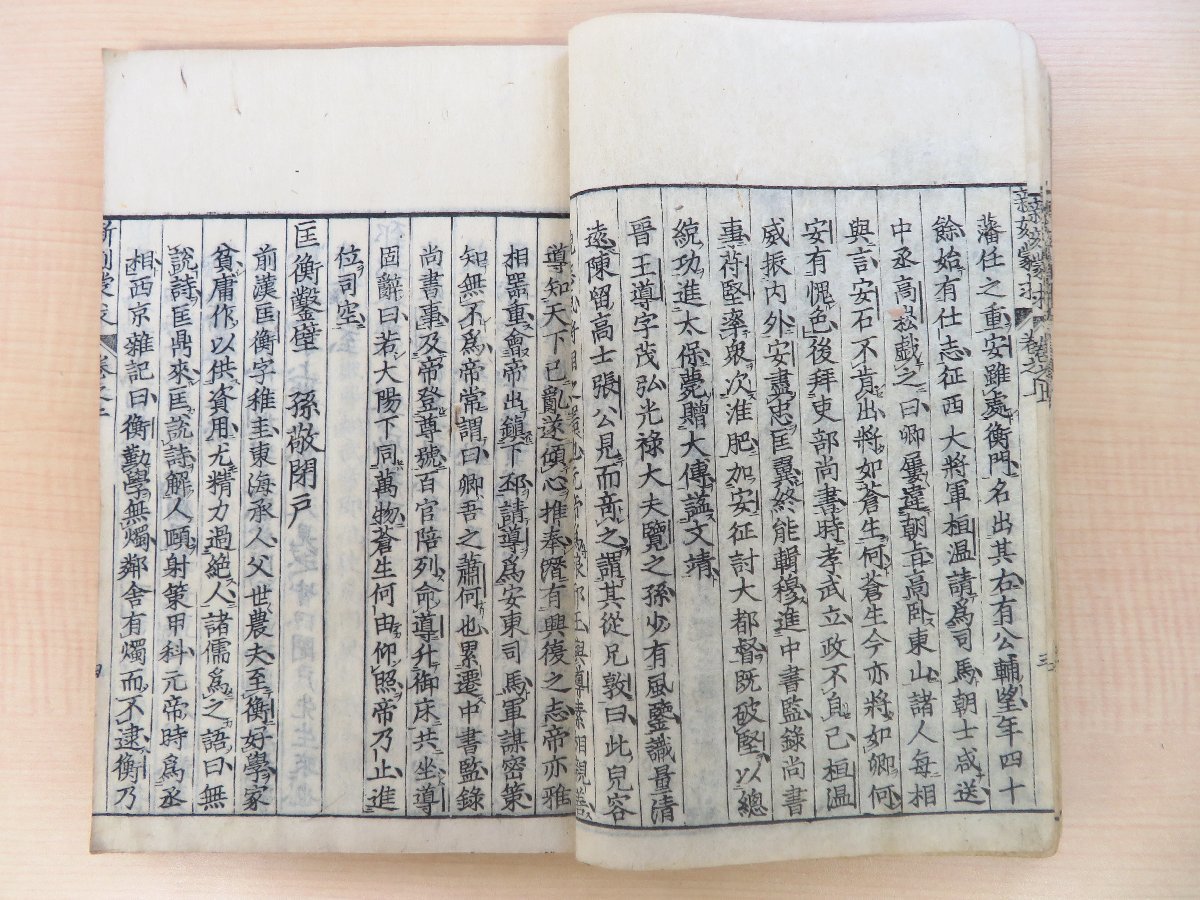 藩任之重安雖處衡門名出其右有公輔望年四十
餘始有仕志征西大將軍桓温請爲司馬朝士咸送
中丞高崧戲之曰卿屢違朝旨高卧東山諸人每相
與言安石不肯出將如蒼生何蒼生今亦將如卿何
安有愧色後拜吏部尚書時孝武立政不自己桓温
威振内外安盡忠匡翼終能輯穆進中書監錄尚書
事苻堅率衆次淮肥加安征討大都督既破堅以總
統功進太保薨贈大傅謚文靖
晉王導字茂弘光禄大夫覽之孫少有風鑒識量清
遠陳留高士張公見而竒之謂其從兄敦曰此兒容
王與導素相親善
導知天下已亂遂傾心推奉潛有興復之志帝亦雅
相器重會帝出鎮下邳請導爲安東司馬軍謀密策
知無不爲帝常謂曰卿吾之蕭何也累遷中書監錄
尚書事及帝登尊號百官陪列命導升御床共坐導
固辭曰若大陽下同萬物蒼生何由仰照帝乃止進
位司空
匡衡鑿壁 孫敬閉戸
前漢匡衡字稚圭東海承人父世農夫至衡好學家
貧庸作以供資用尤精力過絶人諸儒爲之語曰無
說詩匡鼎來匡說詩解人頤射策甲科元帝時爲丞
相西京雜記曰衡勤學無燭鄰舎有燭而不逮衡乃